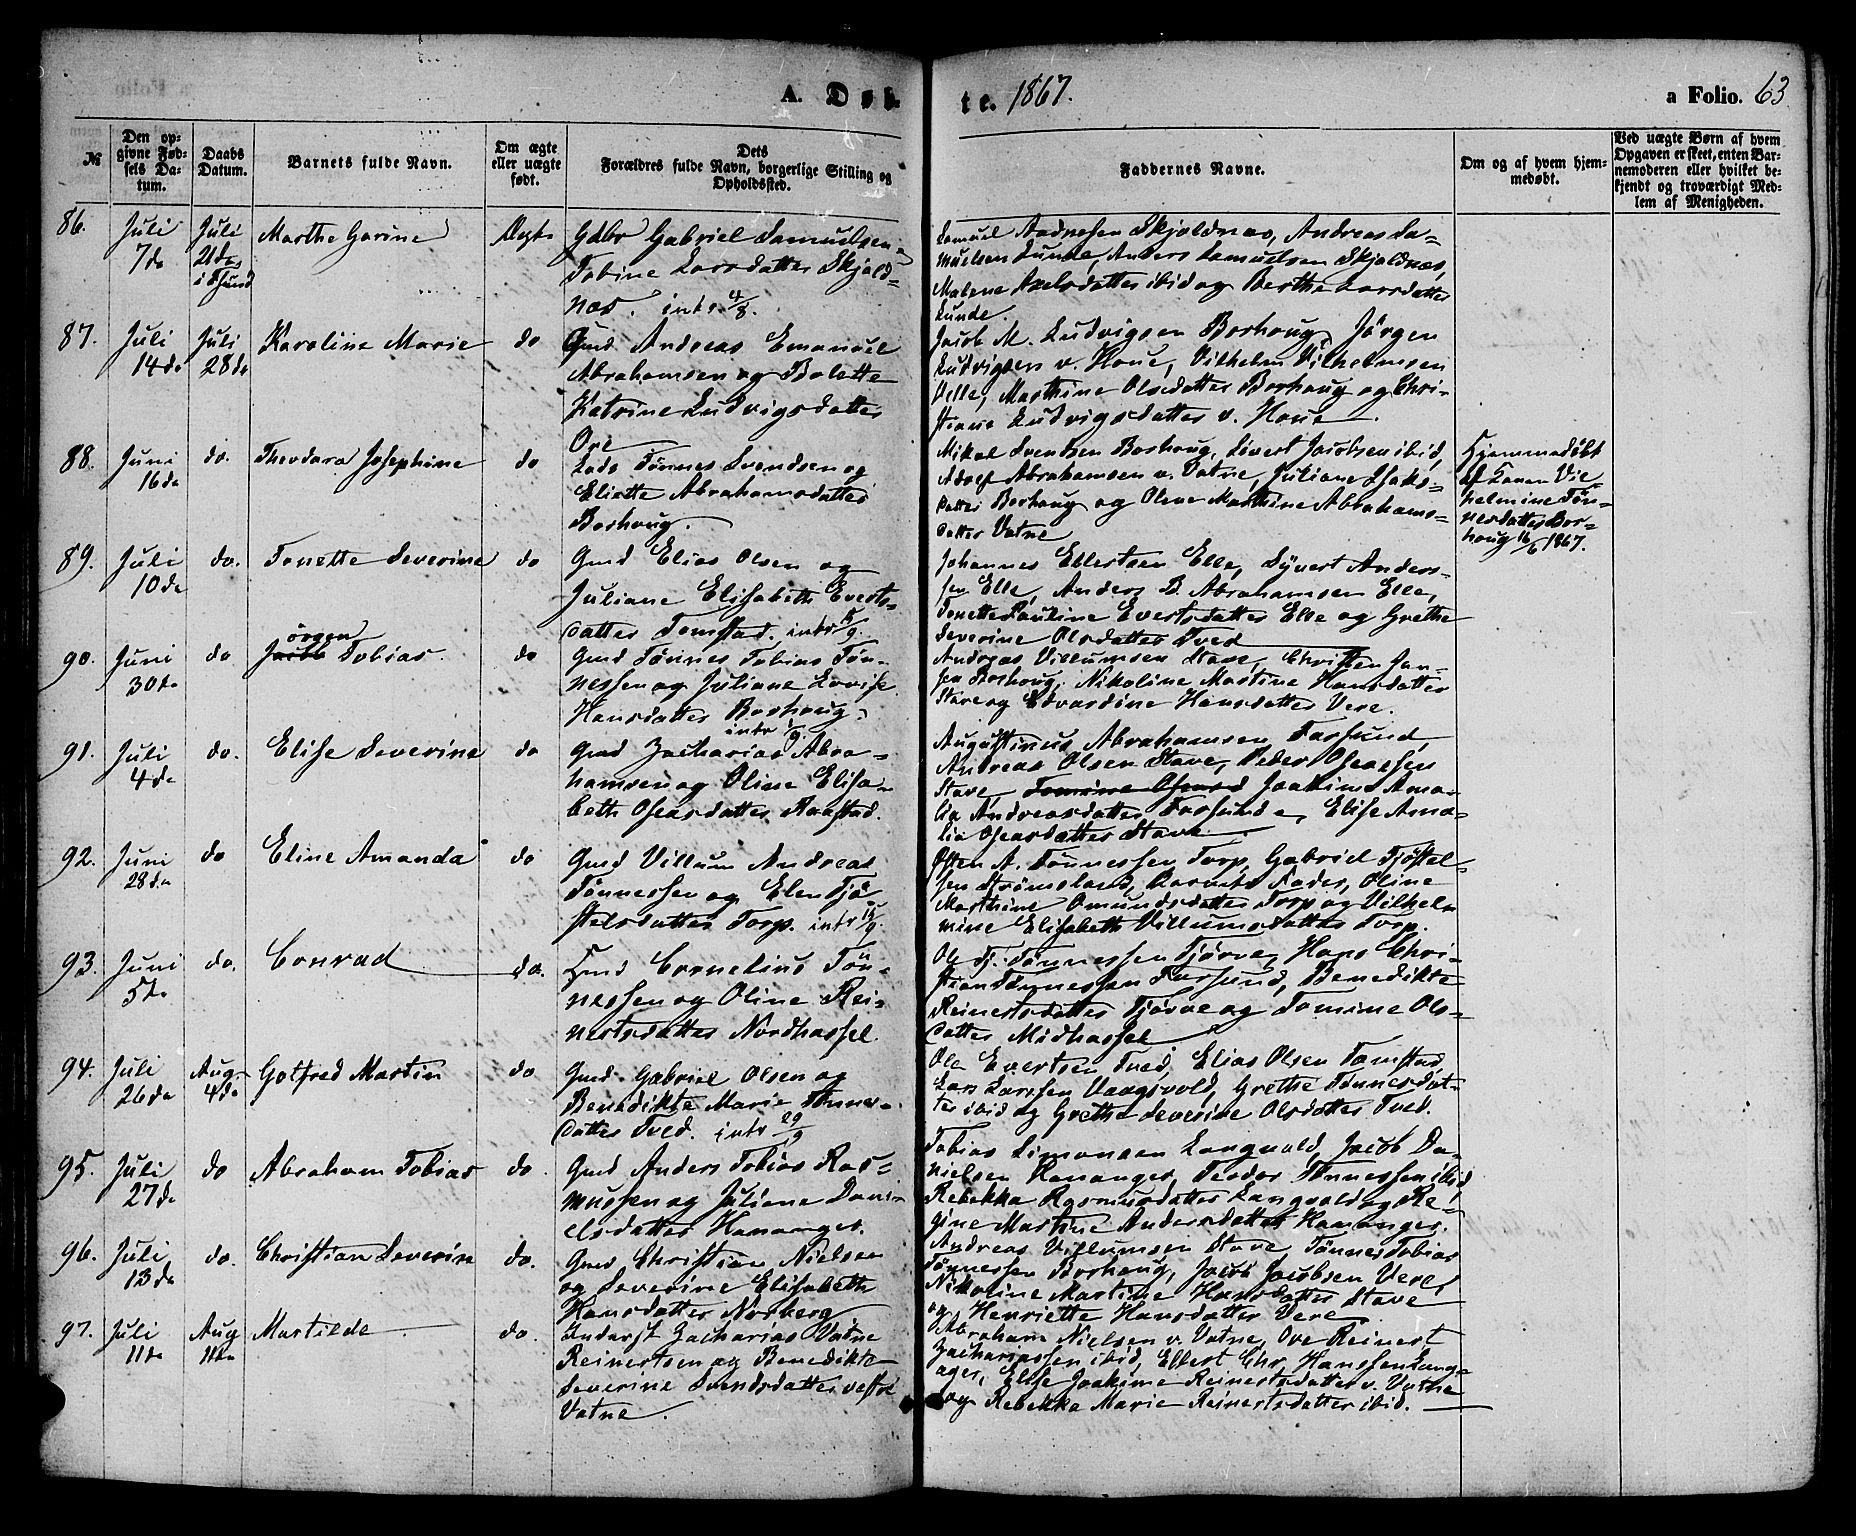 A. Døb-
te. 1867.
a Folio. 63
№
Den op-
givne Fød-
sels Da-
tum.
Daabs
Datum.
Barnets fulde Navn.
Om ægte
eller uægte
født.
Dets
Forældres fulde Navn, borgerlige Stilling og
Opholdssted.
Faddernes Navne.
Om og af hvem hjem-
medøbt.
Ved uægte Børn af hvem
Opgaven er skeet, enten Bar-
nemoderen eller hvilket be-
kjendt og troværdigt Med-
lem af Menigheden.
86.
Juli
7de
Juli
21des
i Fsund
Marthe Garine
Ægte
Gdbr Gabriel Samuelsen
Tobine Larsdatter Skjold-
næs. intr. 4/8.
Samuel Aadnesen Skjoldnæs, Andreas Sa-
muelsen Lunde, Anders Samuelsen Skjoldnæs,
Malene Axelsdatter ibid og Berthe Larsdatter
Lunde
87.
Juli
14de
Juli
28de
Karoline Marie
do
Gmd Andreas Emanuel
Abrahamsen og Bolette
Katrine Ludvigsdatter
Ore
Jacob M. Ludvigsen Borhoug, Jörgen
Ludvigsen v. Houe, Vilhelm Vilhelmsen
Velle, Marthine Olsdatter Borhoug og Chri-
stiane Ludvigsdatter v. Houe
88.
Juni
16de
do.
Theodora Josephine
do
Lods Tönnes Svendsen og
Eliatte Abrahamsdatter
Borhoug.
Mikal Svendsen Borhoug, Sivert Jacobsen ibid,
Adolf Abrahamsen v. Vatne, Juliane Isaks-
datter Borhoug og Olene Marthine Abrahams-
datter Vatne
Hjemmedöbt
af Karen Vil-
helmine Tön-
nesdatter Bor-
houg 16/6 1867.
89.
Juli
10de
do.
Tonette Severine
do
Gmd Elias Olsen og
Juliane Elisabeth Everts-
datter Tomstad. intr 15/9.
Johannes Ellertsen Elle, Syvert Anders-
sen Elle, Anders B. Abrahamsen Elle,
Tonette Pauline Evertsdatter Elle og Grethe
Severine Olsdatter Tved
90.
Juni
30te
do
örgen
Jacob Tobias.
do
Gmd Tönnes Tobias Tön-
nessen og Juliane Lovise
Hansdatter Borhoug,
intr 1/9.
Andreas Villumsen Stave, Christen Jan-
sen Borhoug, Nikoline Martine Hansdatter
Stave og Edvardine Hansdatter Vere.
91.
Juli
4de
do.
Elise Severine
do
Gmd Zacharias Abra-
hamsen og Oline Elisa-
beth Osearsdatter Raastad.
Augustinus Abrahamsen Farsund,
Andreas Olsen Stave, Peder Osearsen
Stave, Tomine Osears Joakime Ama-
lia Andreasdatter Farsund, Elise Ama-
lia Osearsdatter Stave.
92.
Juni
28de
do
Eline Amanda
do
Gmd Villum Andreas
Tönnessen og Elen Tjö-
stelsdatter Torp. intr 15/9.
Osten A. Tönnessen Torp, Gabriel Tjöstel-
sen Strömsland, Barnets Fader, Oline
Marthine Omundsdatter Torp og Vilhel-
mine Elisabeth Villumsdatter Torp.
93.
Juni
5te
do.
Conrad
do.
Hmd Cornelius Tön-
nessen og Oline Rei-
nertsdatter Nordhassel
Ole Tj. Tönnessen Tjörve, Hans Chri-
stian Tönnessen Farsund, Benedikte
Reinertsdatter Tjörve og Tomine Ols-
datter Midhassel
94.
Juli
26de
Aug.
4de
Gotfred Martin
do
Gmd Gabriel Olsen og
Benedikte Marie Tönnes-
datter Tved. intr 29/9
Ole Evertsen Tved, Elias Olsen Tomstad,
Lars Larssen Vaagsvold, Grethe Tönnesdat-
ter ibid og Grethe Severine Olsdatter Tved.
95.
Juli
27de
do
Abraham Tobias
do.
Gmd Anders Tobias Ras-
mussen og Juliane Dani-
elsdatter Hananger.
Tobias Simonsen Langvald, Jacob Da-
nielsen Hananger, Teodor Tönnessen ibid,
Rebekka Rasmusdatter Langvald og Re-
gine Martine Andersdatter Hananger.
96.
Juli
13de
do.
Christian Severin
do.
Gmd Christian Nielsen
og Severine Elisabeth
Hansdatter Norberg
Andreas Villumsen Stave, Tönnes Tobias
Tönnessen Borhoug, Jacob Jacobsen Vere,
Nikoline Martine Hansdatter Stave
og Henriette Hansdatter Vere
97.
Juli
11te
Aug
11te
Martilde
do.
Inderst Zacharias Vatne
Reinertsen og Benedikte
Severine Svendsdatter vestre
Vatne.
Abraham Nielsen v. Vatne, Ove Reinert
Zachariassen ibid, Ellert Chr. Hanssen Lang-
ager, Elise Joakime Reinertsdatter v. Vatne
og Rebekka Marie Reinertsdatter ibid.